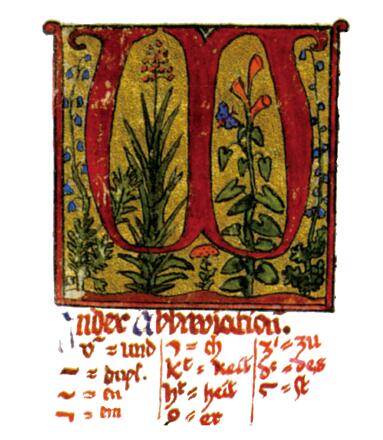 W
Index Abbreviation.
v̄ = und
~ = dupl.
~ = en
¬ = em
ɔ = ch
kᵗ = keit
hᵗ = heit
ꝯ = er
zᶦ = zu
dˢ = des
ʕ = st